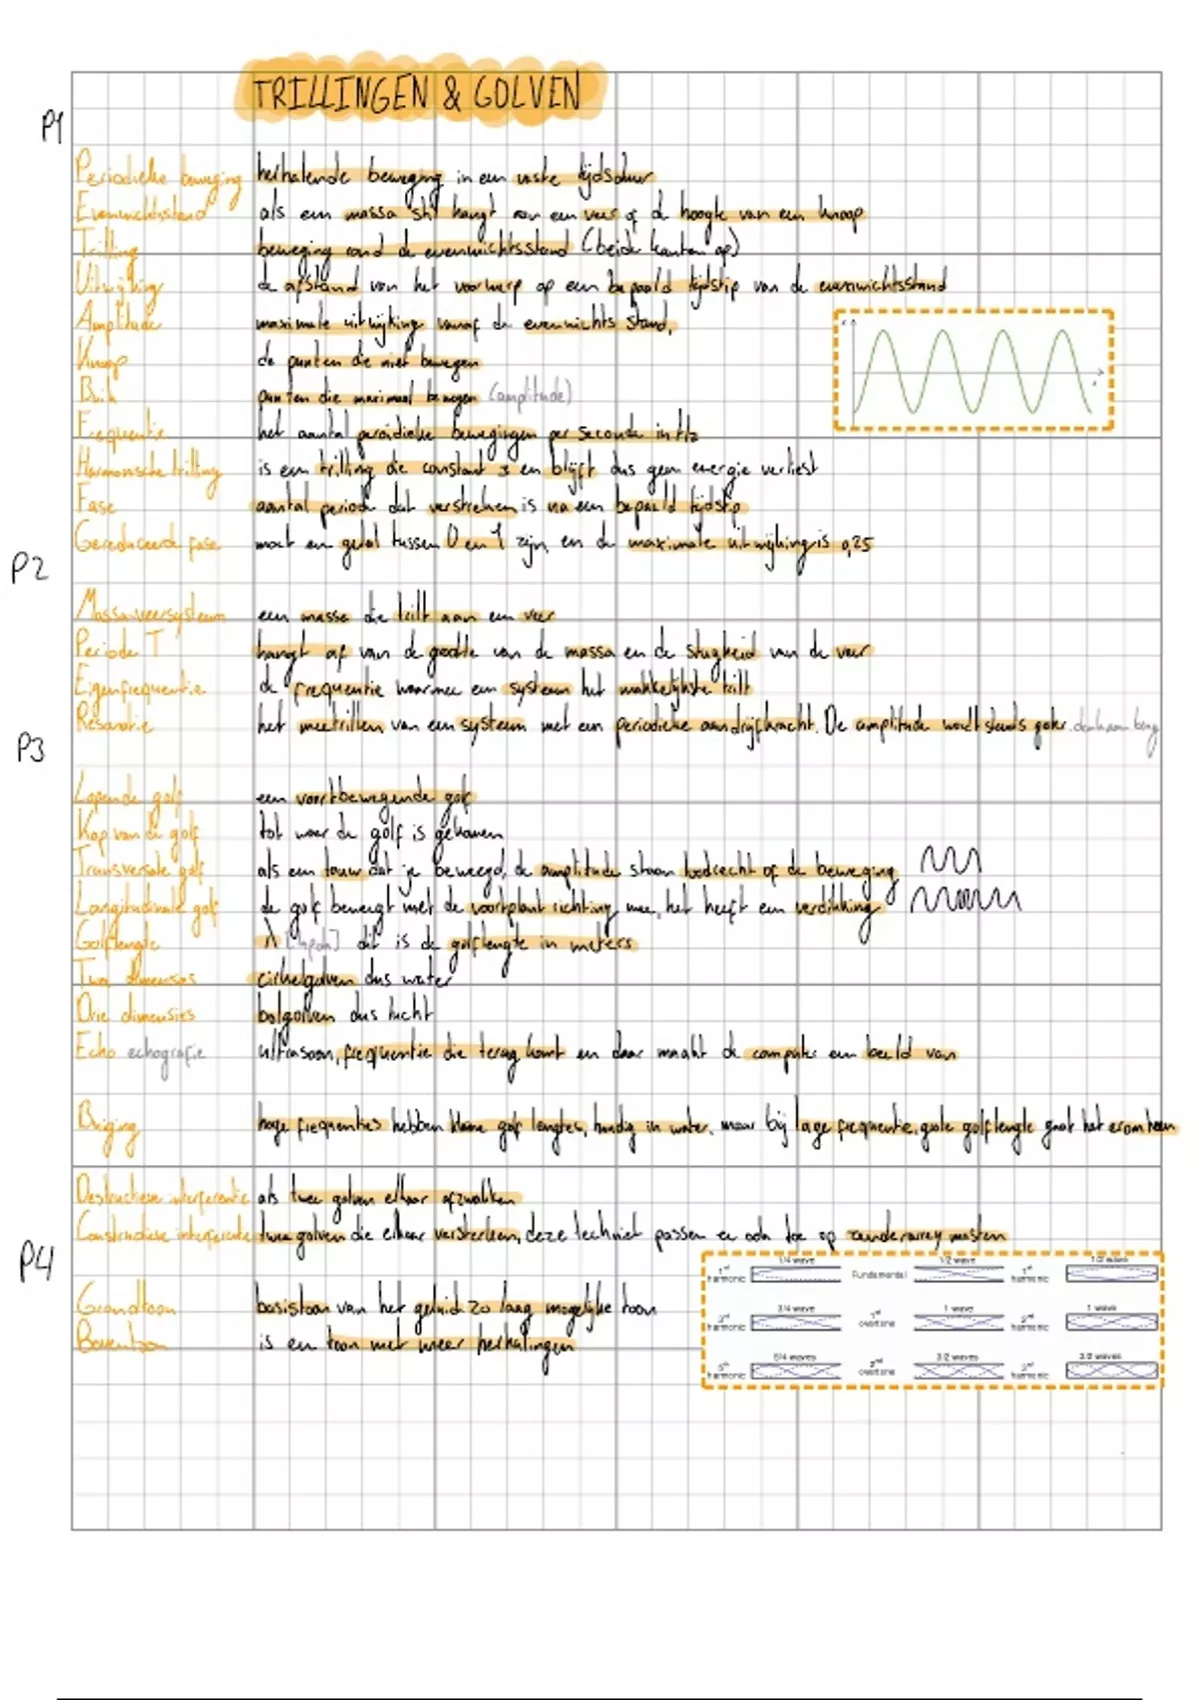 TRILLINGEN & GOLVEN
P1
Periodieke beweging herhalende beweging in een vaste tijdsduur
Evenwichtsstand als een massa stil hangt aan een veer of de hoogte van een knoop
Trilling beweging rond de evenwichtsstand (beide kanten op)
Uitwijking de afstand van het voorwerp op een bepaald tijdstip van de evenwichtsstand
Amplitude maximale uitwijking vanaf de evenwichts stand,
Knoop de punten die niet bewegen
Buik punten die maximaal bewegen (amplitude)
Frequentie het aantal periodieke bewegingen per seconde in Hz
Harmonische trilling is een trilling die constant is en blijft dus geen energie verliest
Fase aantal periode dat verstreken is na een bepaald tijdstip
Gereduceerde fase moet een getal tussen 0 en 1 zijn, en de maximale uitwijking is 0,25
P2
Massa-veersysteem een massa die trilt aan een veer
Periode T hangt af van de grootte van de massa en de stugheid van de veer
Eigenfrequentie de frequentie waarmee een systeem het makkelijkste trilt
Resonantie het meetrillen van een systeem met een periodieke aandrijfkracht. De amplitude wordt steeds groter.
P3
Lopende golf een voortbewegende golf
Kop van de golf tot waar de golf is gekomen
Transversale golf als een touw dat je beweegd, de amplitude staan loodrecht op de beweging
Longitudinale golf de golf beweegt met de voortplant richting mee, het heeft een verdikking
Golflengte λ dit is de golflengte in meters
Twee dimensies cirkelgolven dus water
Drie dimensies bolgolven dus lucht
Echo echografie ultrasoon, frequentie die terug komt en daar maakt de computer een beeld van
Buiging hoge frequenties hebben kleine golf lengtes, handig in water, maar bij lage frequentie, grote golflengte gaat het eromheen
Destructieve interferentie als twee golven elkaar afzwakken
Constructieve interferentie twee golven die elkaar versterken, deze techniek passen ze ook toe op
P4
1st harmonic 1/4 wave Fundamental 1/2 wave 1st harmonic 1/2 wave
3rd harmonic 3/4 wave 1st overtone 1 wave 2nd harmonic 1 wave
5th harmonic 5/4 waves 2nd overtone 3/2 waves 3rd harmonic 3/2 waves
Grondtoon basistoon van het geluid zo laag mogelijke toon
Boventoon is een toon met meer herhalingen